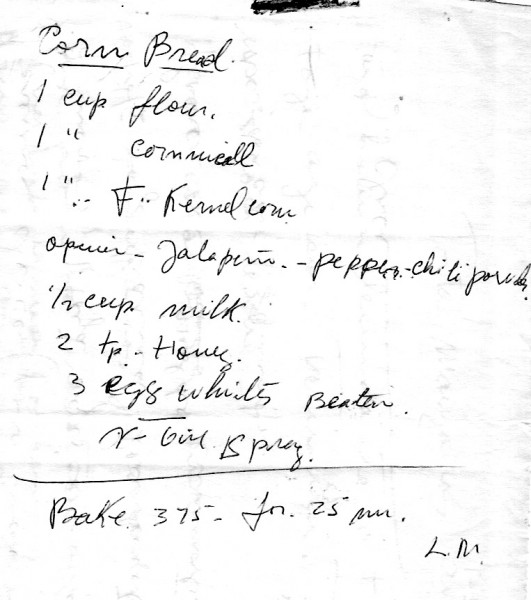 Corn Bread.
1 cup flour.
1 " cornmeall
1 " Kernel corn
Jalapeno - pepper - chili powder
1/2 cup milk.
2 tp - Honey.
3 egg whites Beaten.
Spray.
Bake 375 - for. 25 min.
L.M.